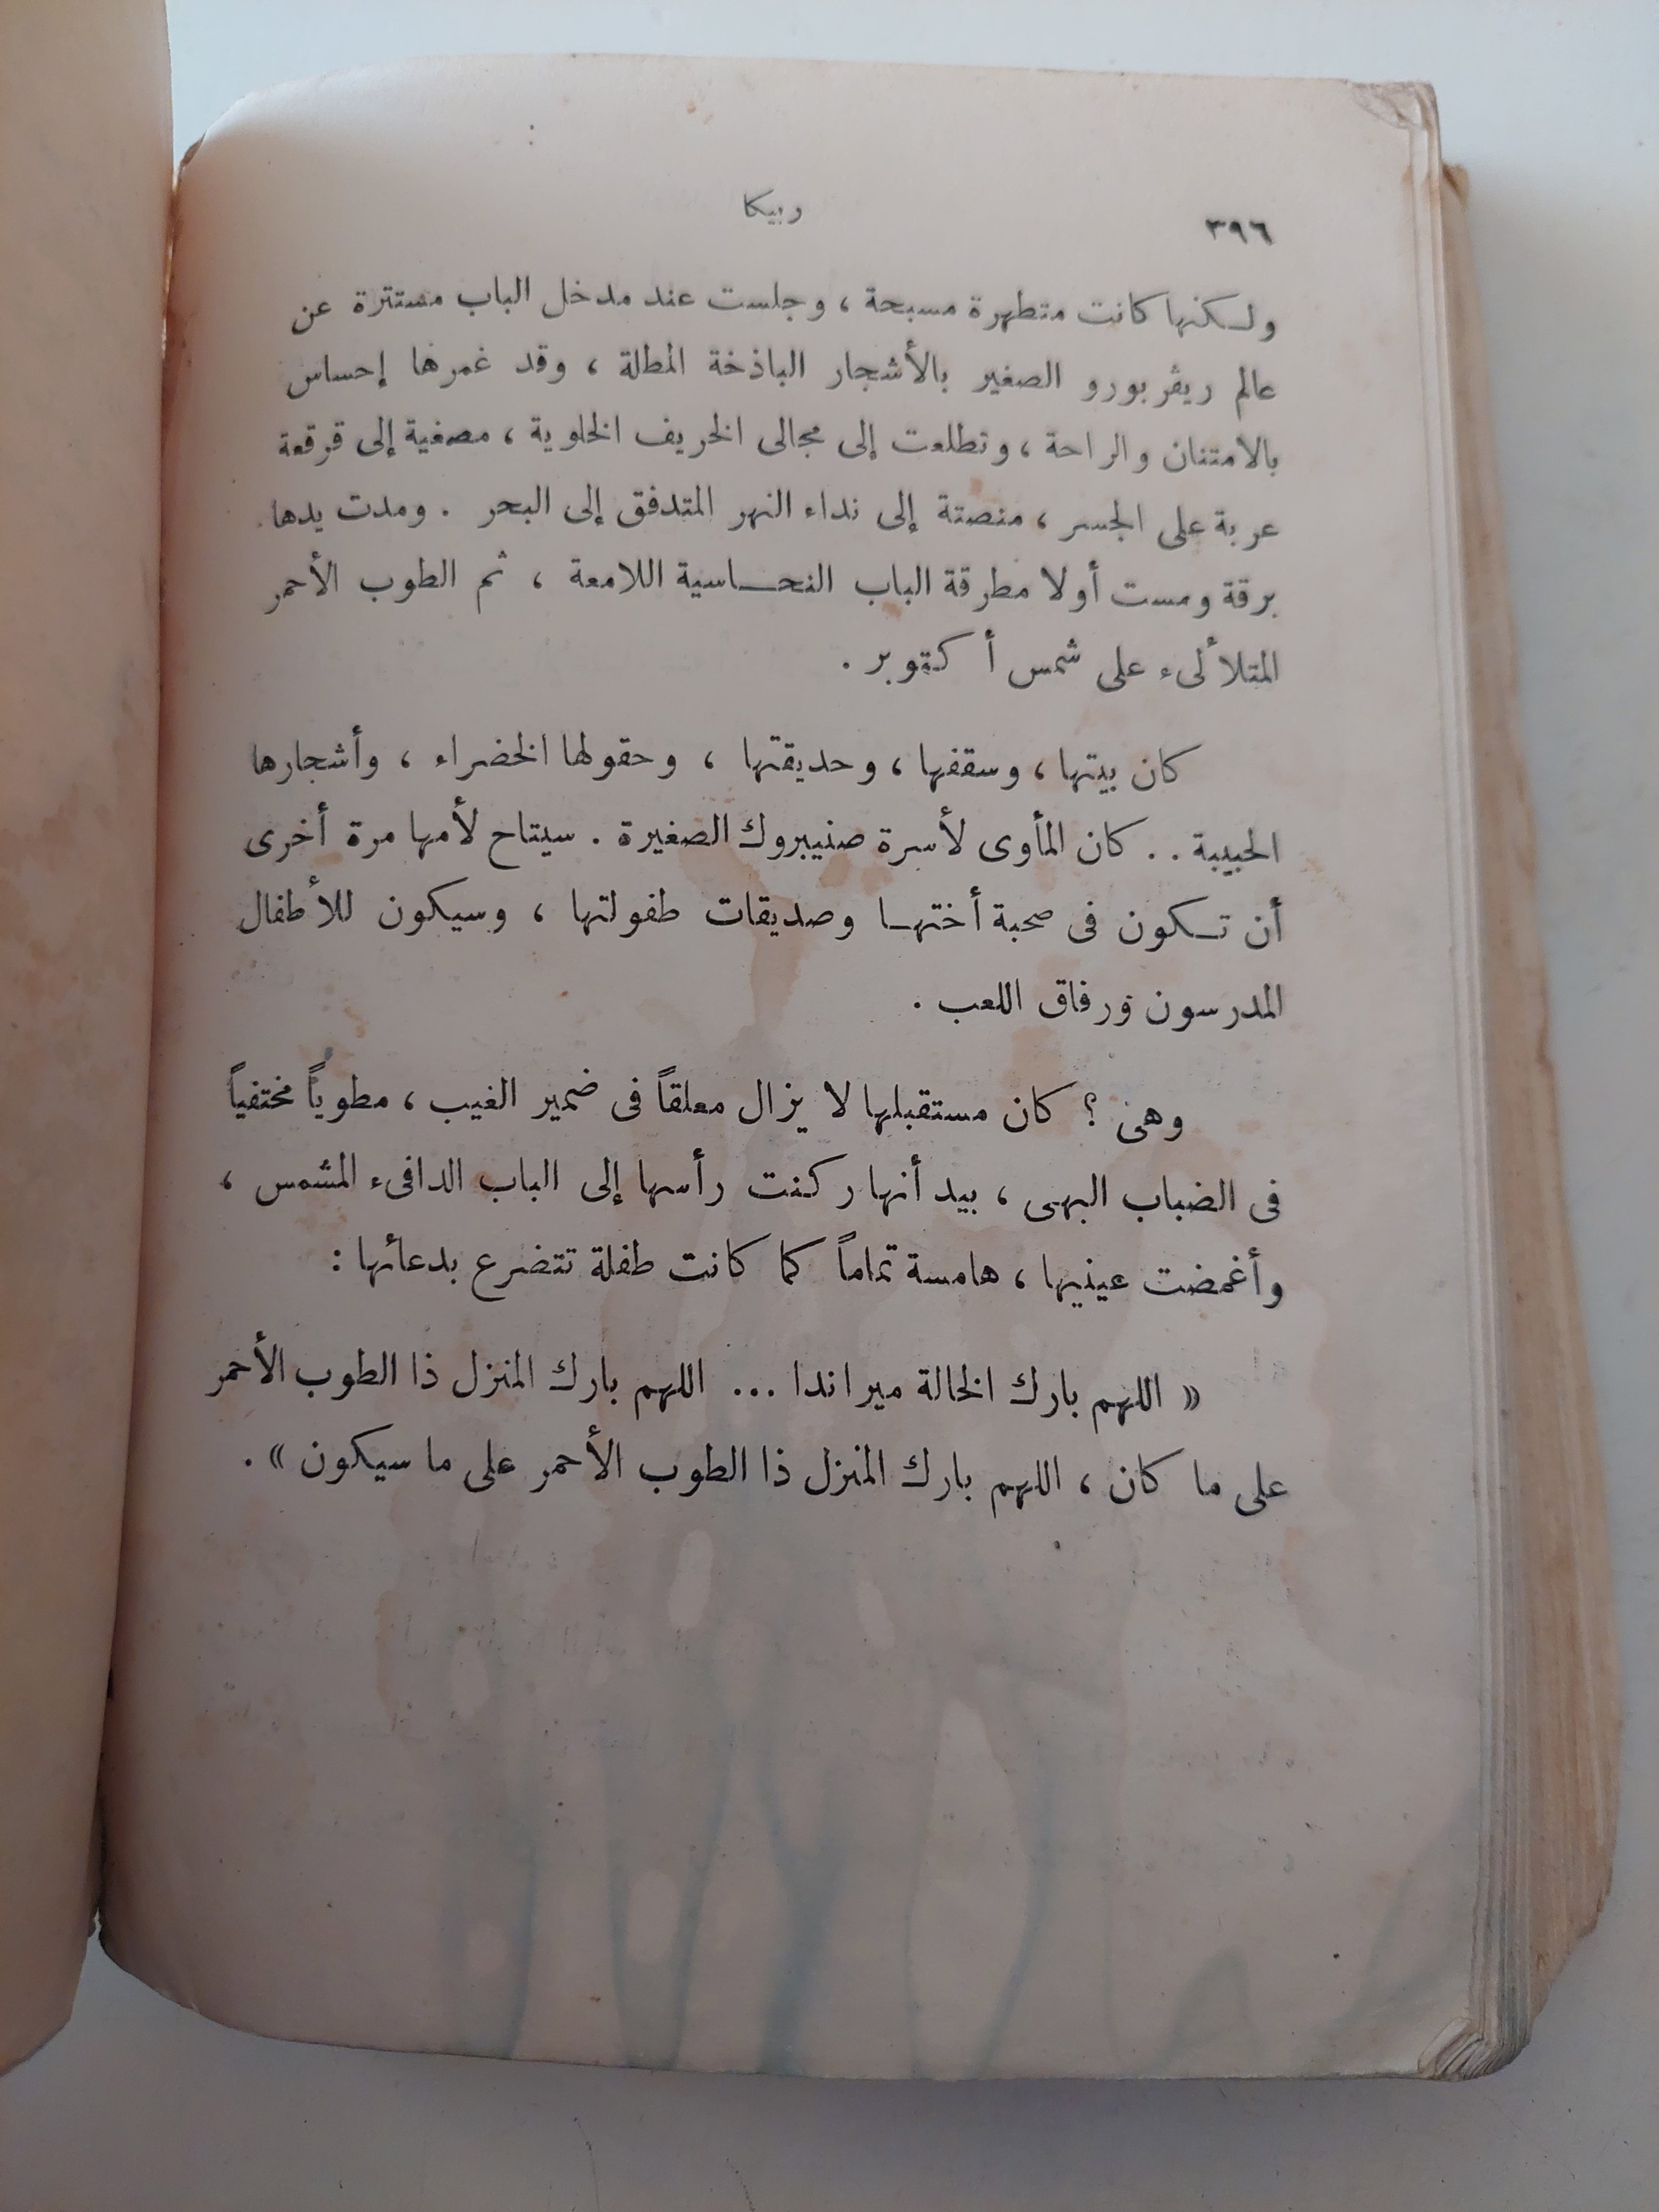 ٣٩٦
ربيكا
ولكنها كانت متطهرة مسبحة ، وجلست عند مدخل الباب مستترة عن
عالم ريڤربورو الصغير بالأشجار الباذخة المطلة ، وقد غمرها إحساس
بالامتنان والراحة ، وتطلعت إلى مجالى الخريف الخلوية ، مصغية إلى قرقعة
عربة على الجسر ، منصتة إلى نداء النهر المتدفق إلى البحر . ومدت يدها
برقة ومست أولا مطرقة الباب النحاسية اللامعة ، ثم الطوب الأحمر
المتلألىء على شمس أكتوبر .
كان بيتها ، وسقفها ، وحديقتها ، وحقولها الخضراء ، وأشجارها
الحبيبة . . كان المأوى لأسرة صنيبروك الصغيرة . سيتاح لأمها مرة أخرى
أن تكون فى صحبة أختها وصديقات طفولتها ، وسيكون للأطفال
المدرسون ورفاق اللعب .
وهى ؟ كان مستقبلها لا يزال معلقاً فى ضمير الغيب ، مطوياً مختفياً
فى الضباب البهى ، بيد أنها ركنت رأسها إلى الباب الدافىء المشمس ،
وأغمضت عينيها ، هامسة تماماً كما كانت طفلة تتضرع بدعائها :
« اللهم بارك الخالة ميراندا ... اللهم بارك المنزل ذا الطوب الأحمر
على ما كان ، اللهم بارك المنزل ذا الطوب الأحمر على ما سيكون » .